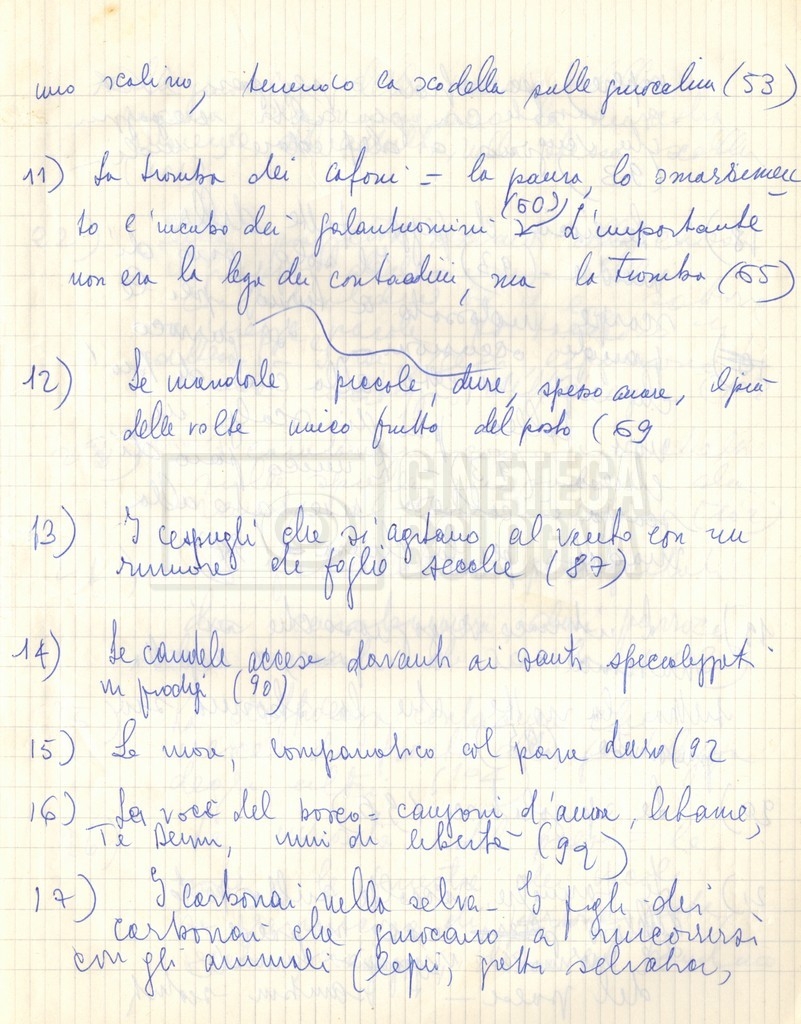 uno scalino, tenendo la scodella sulle ginocchia (53)
11) La tromba dei cafoni = la paura, lo smarrimen
to e l'incubo dei galantuomini (60) L'importante
non era la lega dei contadini, ma la tromba (65)
12) Le mandorle piccole, dure, spesso amare, il più
delle volte unico frutto del posto (69
13) I cespugli che si agitano al vento con un
rumore di foglie secche (87)
14) Le candele accese davanti ai santi specializzati
in prodigi (90)
15) Le more, companatico col pane duro (92
16) La voce del bosco = canzoni d'amore, litanie,
Te Deum, inni di libertà (92)
17) I carbonai nella selva - I figli dei
carbonai che giuocano a rincorrersi
con gli animali (lepri, gatti selvatici,
CINETECA
BOLOGNA